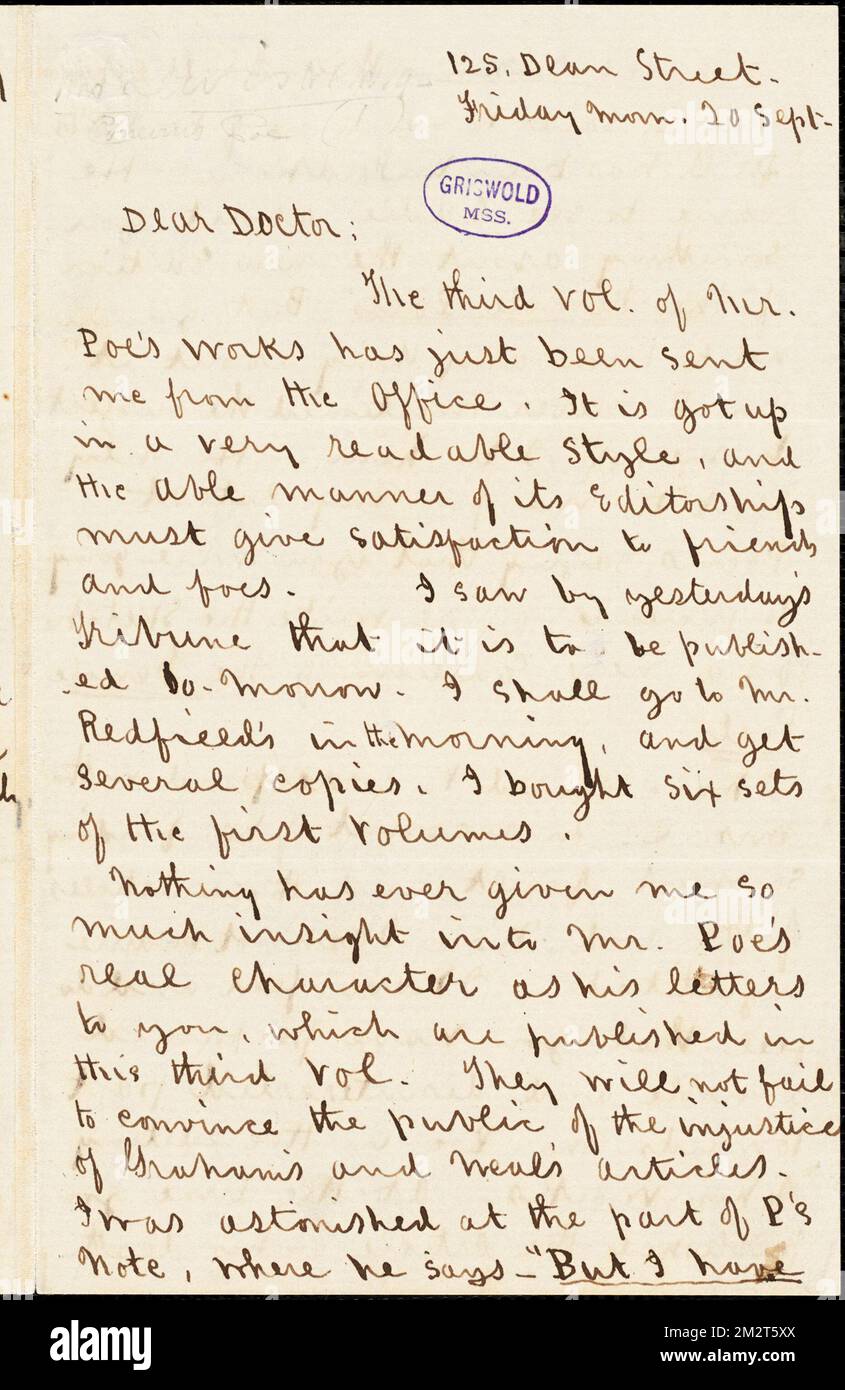 125, Dean Street.
Friday Morn. 20 Sept.
GRISWOLD
MSS.
Dear Doctor;
The third vol. of Mr.
Poe's works has just been sent
me from the Office. It is got up
in a very readable style, and
the able manner of its Editorship
must give satisfaction to friends
and foes. I saw by yesterday's
Tribune that it is to be publish-
ed to-morrow. I shall go to Mr.
Redfield's in the morning, and get
several copies. I bought six sets
of the first volumes.
Nothing has ever given me so
much insight into Mr. Poe's
real character as his letters
to you, which are published in
this third vol. They will not fail
to convince the public of the injustice
of Graham's and Neal's articles.
I was astonished at the part of P's
Note, where he says—"But I have
alamy
Image ID: 2M2T5XX
www.alamy.com